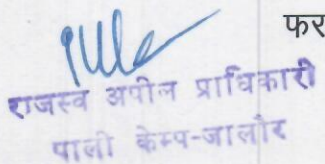 फर
राजस्व अपील प्राधिकारी
पाली केम्प-जालौर